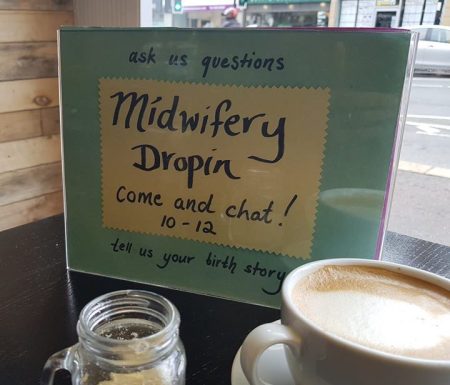 ask us questions
Midwifery
Dropin
Come and chat!
10-12
tell us your birth story